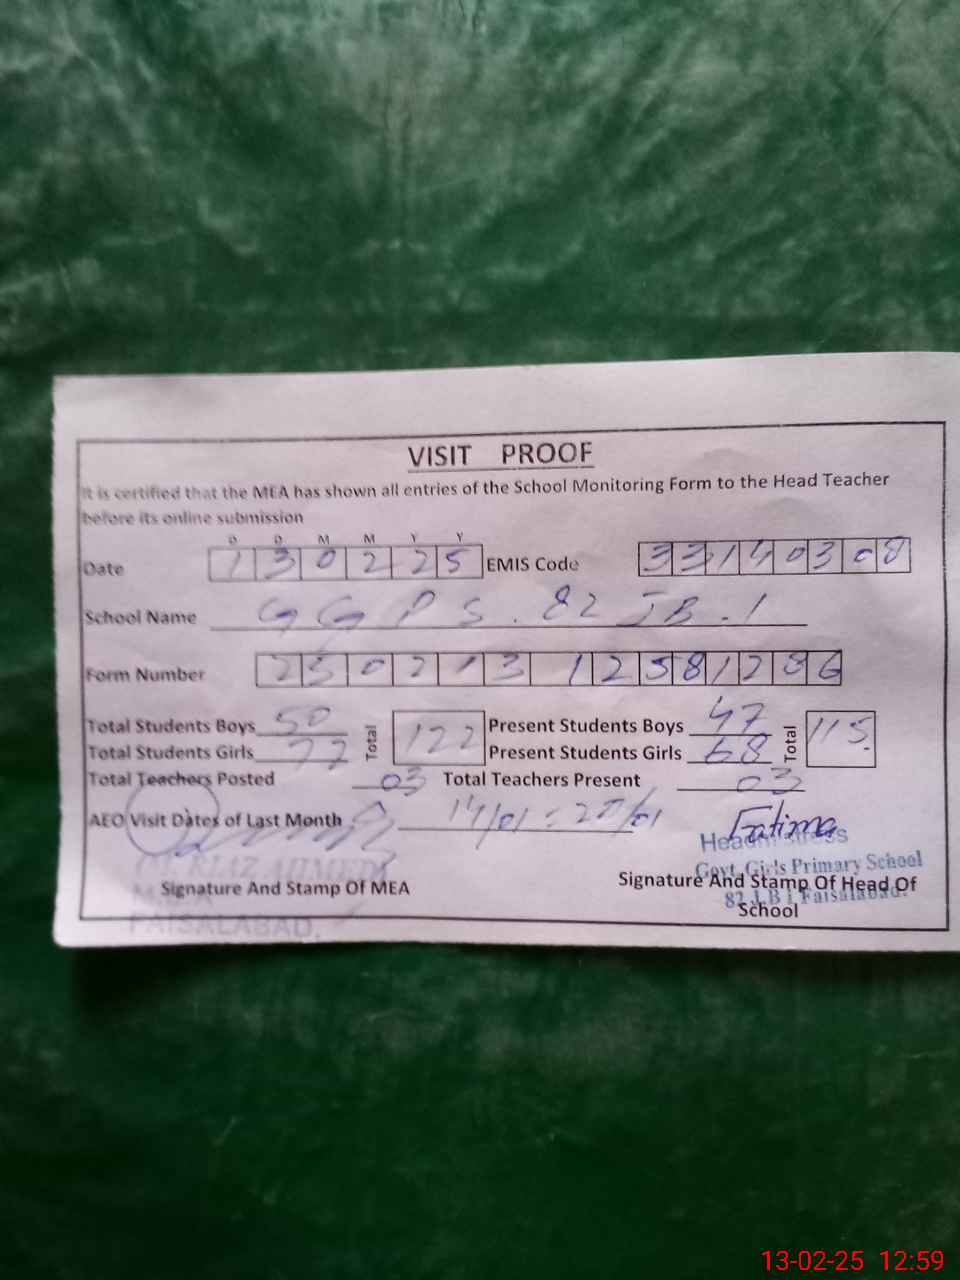 VISIT PROOF
It is certified that the MEA has shown all entries of the School Monitoring Form to the Head Teacher
before its online submission
D D M M Y Y
Date 1 3 0 2 2 5 EMIS Code 3 3 1 4 0 3 0 8
School Name G G P S . 82 JB . 1
Form Number 2 5 0 2 1 3 1 2 5 8 1 2 3 6
Total Students Boys 50 Total 122 Present Students Boys 47 Total 115
Total Students Girls 72 Present Students Girls 68
Total Teachers Posted 03 Total Teachers Present 03
AEO Visit Dates of Last Month 14/01 = 20/01 Fatima
Headmistress
RIAZ AHMED Govt. Girls Primary School
Signature And Stamp Of MEA Signature And Stamp Of Head Of
82 J.B I Faisalabad.
School
FAISALABAD.
13-02-25 12:59